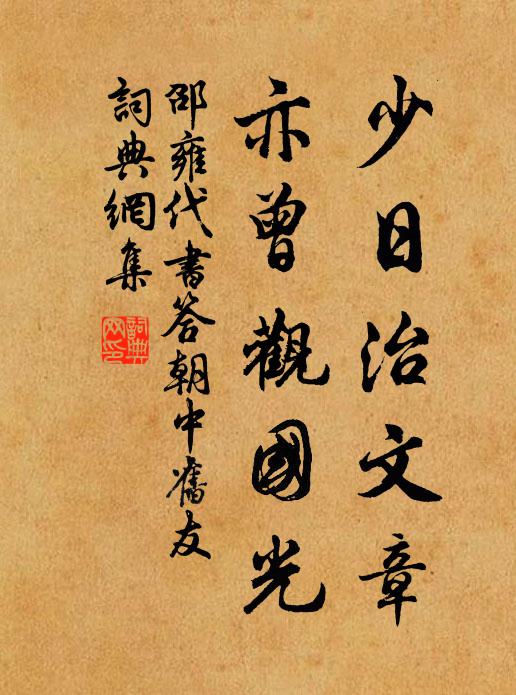 少日治文章
亦曾觀國光
邵雍代書答朝中舊友
詞典網集
詞典网印